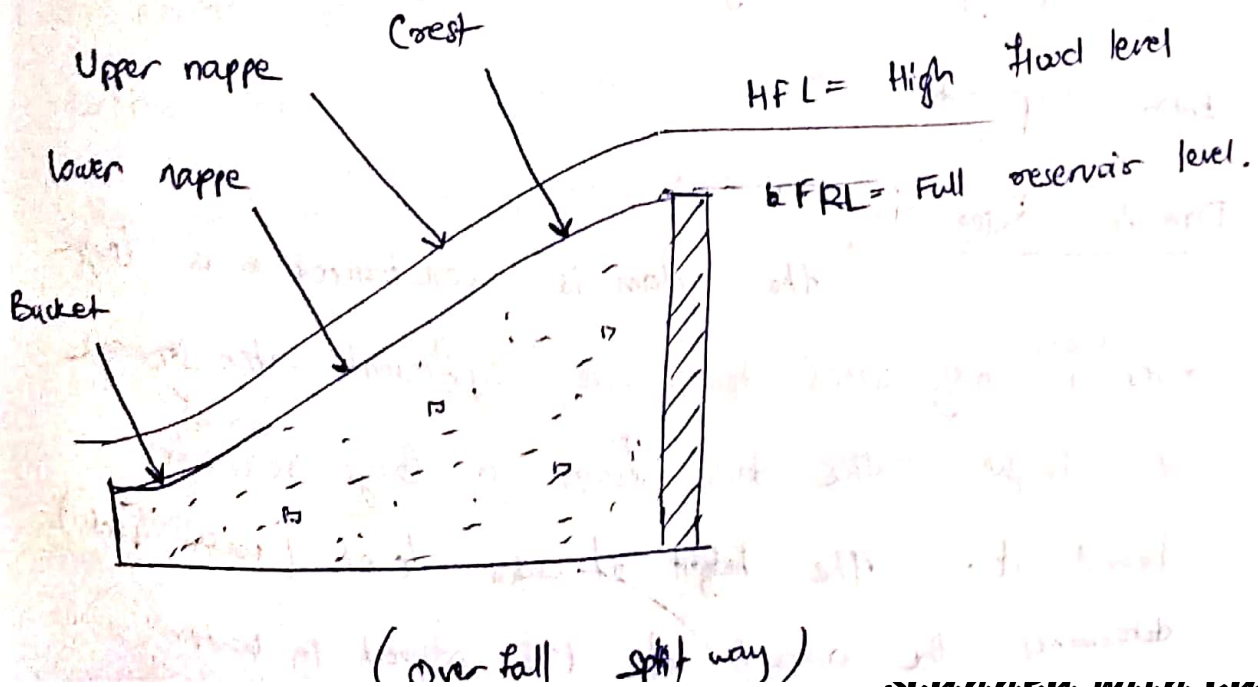 Crest
Upper nappe
HFL = High flood level
Lower nappe
FRL = Full reservoir level.
Bucket
(Over fall spill way)